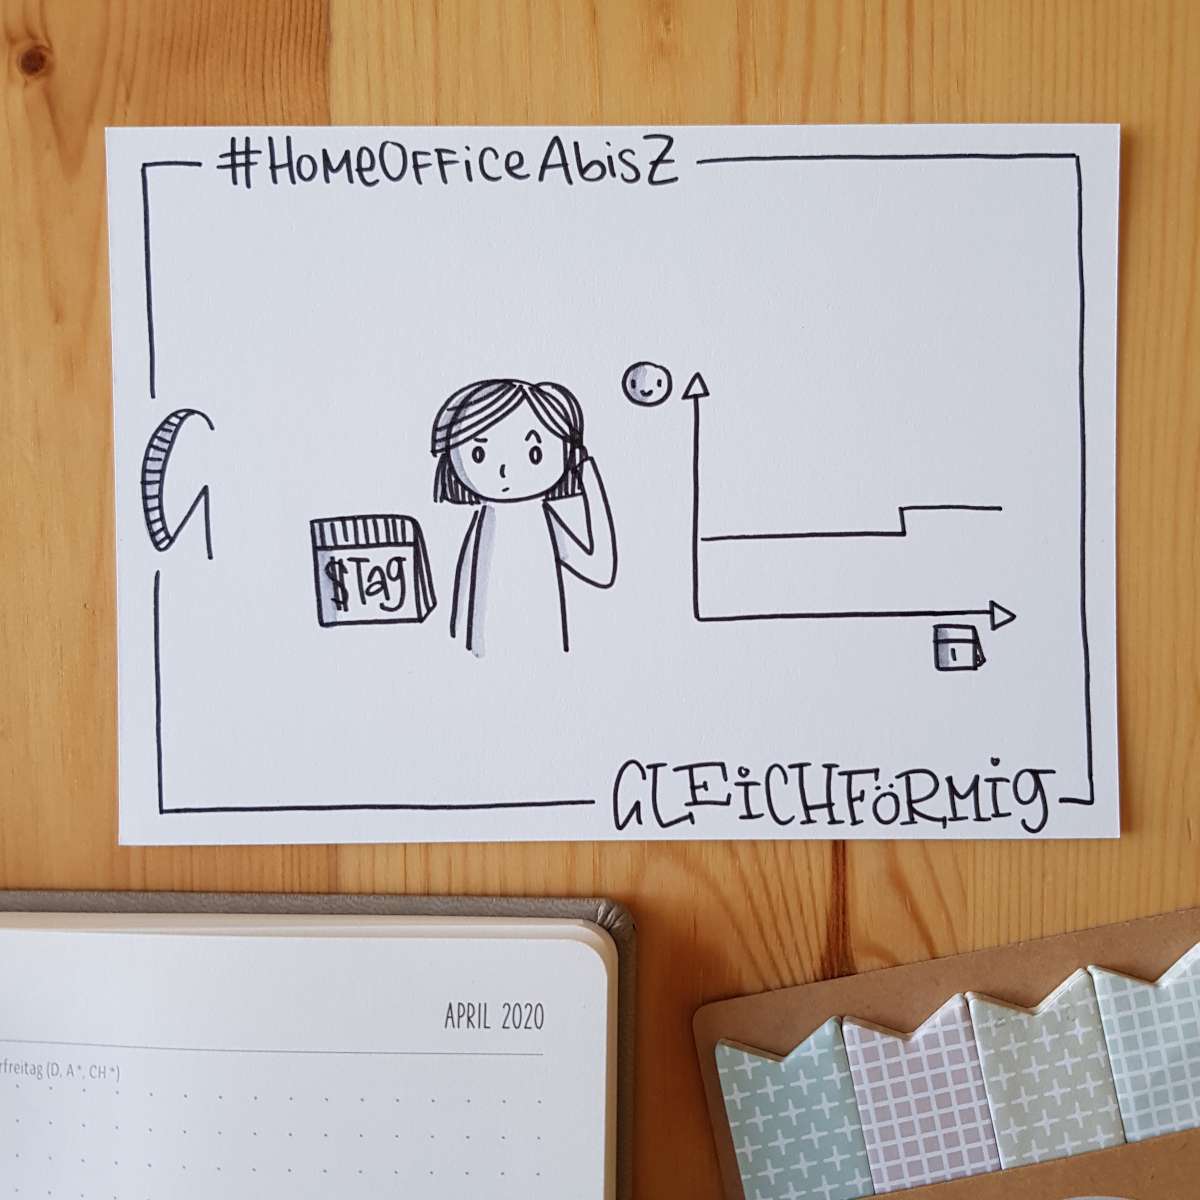 #HOMEOFFICE AbisZ
G
$Tag
1
GLEICHFÖRMIG
APRIL 2020
rfreitag (D, A*, CH*)